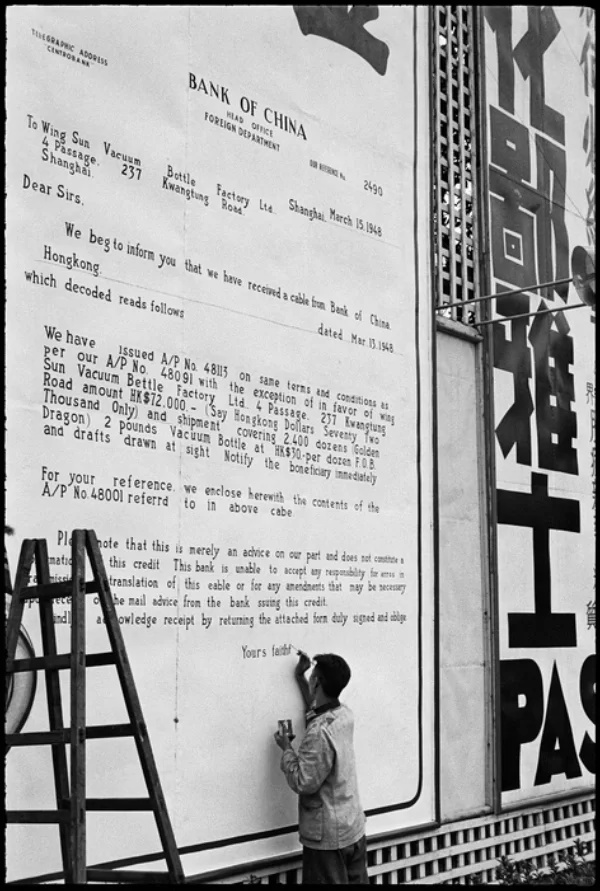 TELEGRAPHIC ADDRESS
"CENTROBANK"
BANK OF CHINA
HEAD OFFICE
FOREIGN DEPARTMENT
OUR REFERENCE No. 2490
To Wing Sun Vacuum Bottle Factory Ltd. Shanghai, March 15, 1948
4 Passage, 237 Kwangtung Road.
Shanghai.
Dear Sirs,
We beg to inform you that we have received a cable from Bank of China
Hongkong. dated Mar. 13. 1948
which decoded reads follows
We have issued A/P No. 48113 on same terms and conditions as
per our A/P No. 48091 with the exception of in favor of wing
Sun Vacuum Bettle Factory Ltd. 4 Passage, 237 Kwangtung
Road amount HK$72,000.- (Say Hongkong Dollars Seventy Two
Thousand Only) and shipment covering 2,400 dozens (Golden
Dragon) 2 pounds Vacuum Bottle at HK$30.-per dozen F.O.B.
and drafts drawn at sight Notify the beneficiary immediately
For your reference, we enclose herewith the contents of the
A/P No. 48001 referrd to in above cabe
note that this is merely an advice on our part and does not constitute a
this credit This bank is unable to accept any responsibility for erros in
translation of this eable or for any amendments that may be necessary
the mail advice from the bank ssuing this credit.
acknowledge receipt by returning the attached form duly signed and oblige
Yours faithf
部雅士
PAS